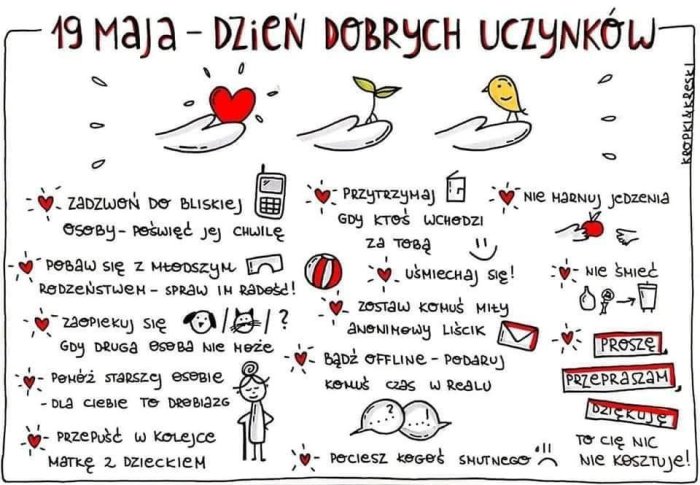 19 MAJA - DZIEŃ DOBRYCH UCZYNKÓW
KROPKI&KRESKI
ZADZWOŃ DO BLISKIEJ
OSOBY - POŚWIĘĆ JEJ CHWILĘ
POBAW SIĘ Z MŁODSZYM
RODZEŃSTWEM - SPRAW IM RADOŚĆ!
ZAOPIEKUJ SIĘ / / ?
GDY DRUGA OSOBA NIE MOŻE
POMÓŻ STARSZEJ OSOBIE
- DLA CIEBIE TO DROBIAZG
PRZEPUŚĆ W KOLEJCE
MATKĘ Z DZIECKIEM
PRZYTRZYMAJ
GDY KTOŚ WCHODZI
ZA TOBĄ
UŚMIECHAJ SIĘ!
ZOSTAW KOMUŚ MIŁY
ANONIMOWY LIŚCIK
BĄDŹ OFFLINE - PODARUJ
KOMUŚ CZAS W REALU
...?
...!
POCIESZ KOGOŚ SMUTNEGO
NIE MARNUJ JEDZENIA
NIE ŚMIEĆ
PROSZĘ,
PRZEPRASZAM,
DZIĘKUJĘ
TO CIĘ NIC
NIE KOSZTUJE!